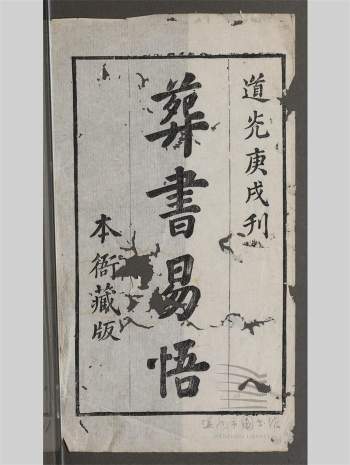 道光庚戌刊
葬書易悟
本衙藏版